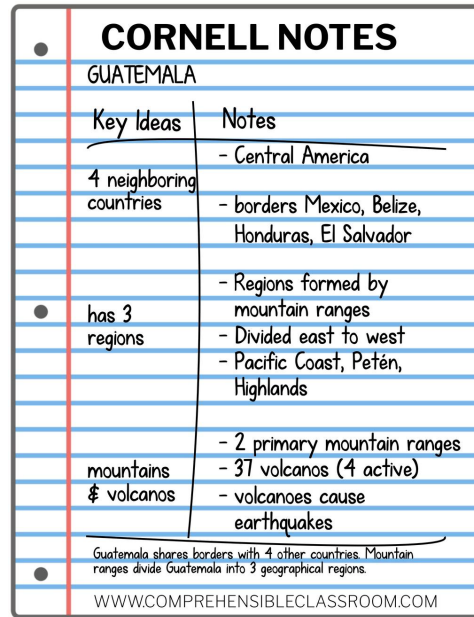 CORNELL NOTES
GUATEMALA
Key Ideas Notes
- Central America
4 neighboring
countries
- borders Mexico, Belize,
Honduras, El Salvador
- Regions formed by
mountain ranges
has 3
regions
- Divided east to west
- Pacific Coast, Petén,
Highlands
- 2 primary mountain ranges
mountains
& volcanos
- 37 volcanos (4 active)
- volcanoes cause
earthquakes
Guatemala shares borders with 4 other countries. Mountain
ranges divide Guatemala into 3 geographical regions.
WWW.COMPREHENSIBLECLASSROOM.COM